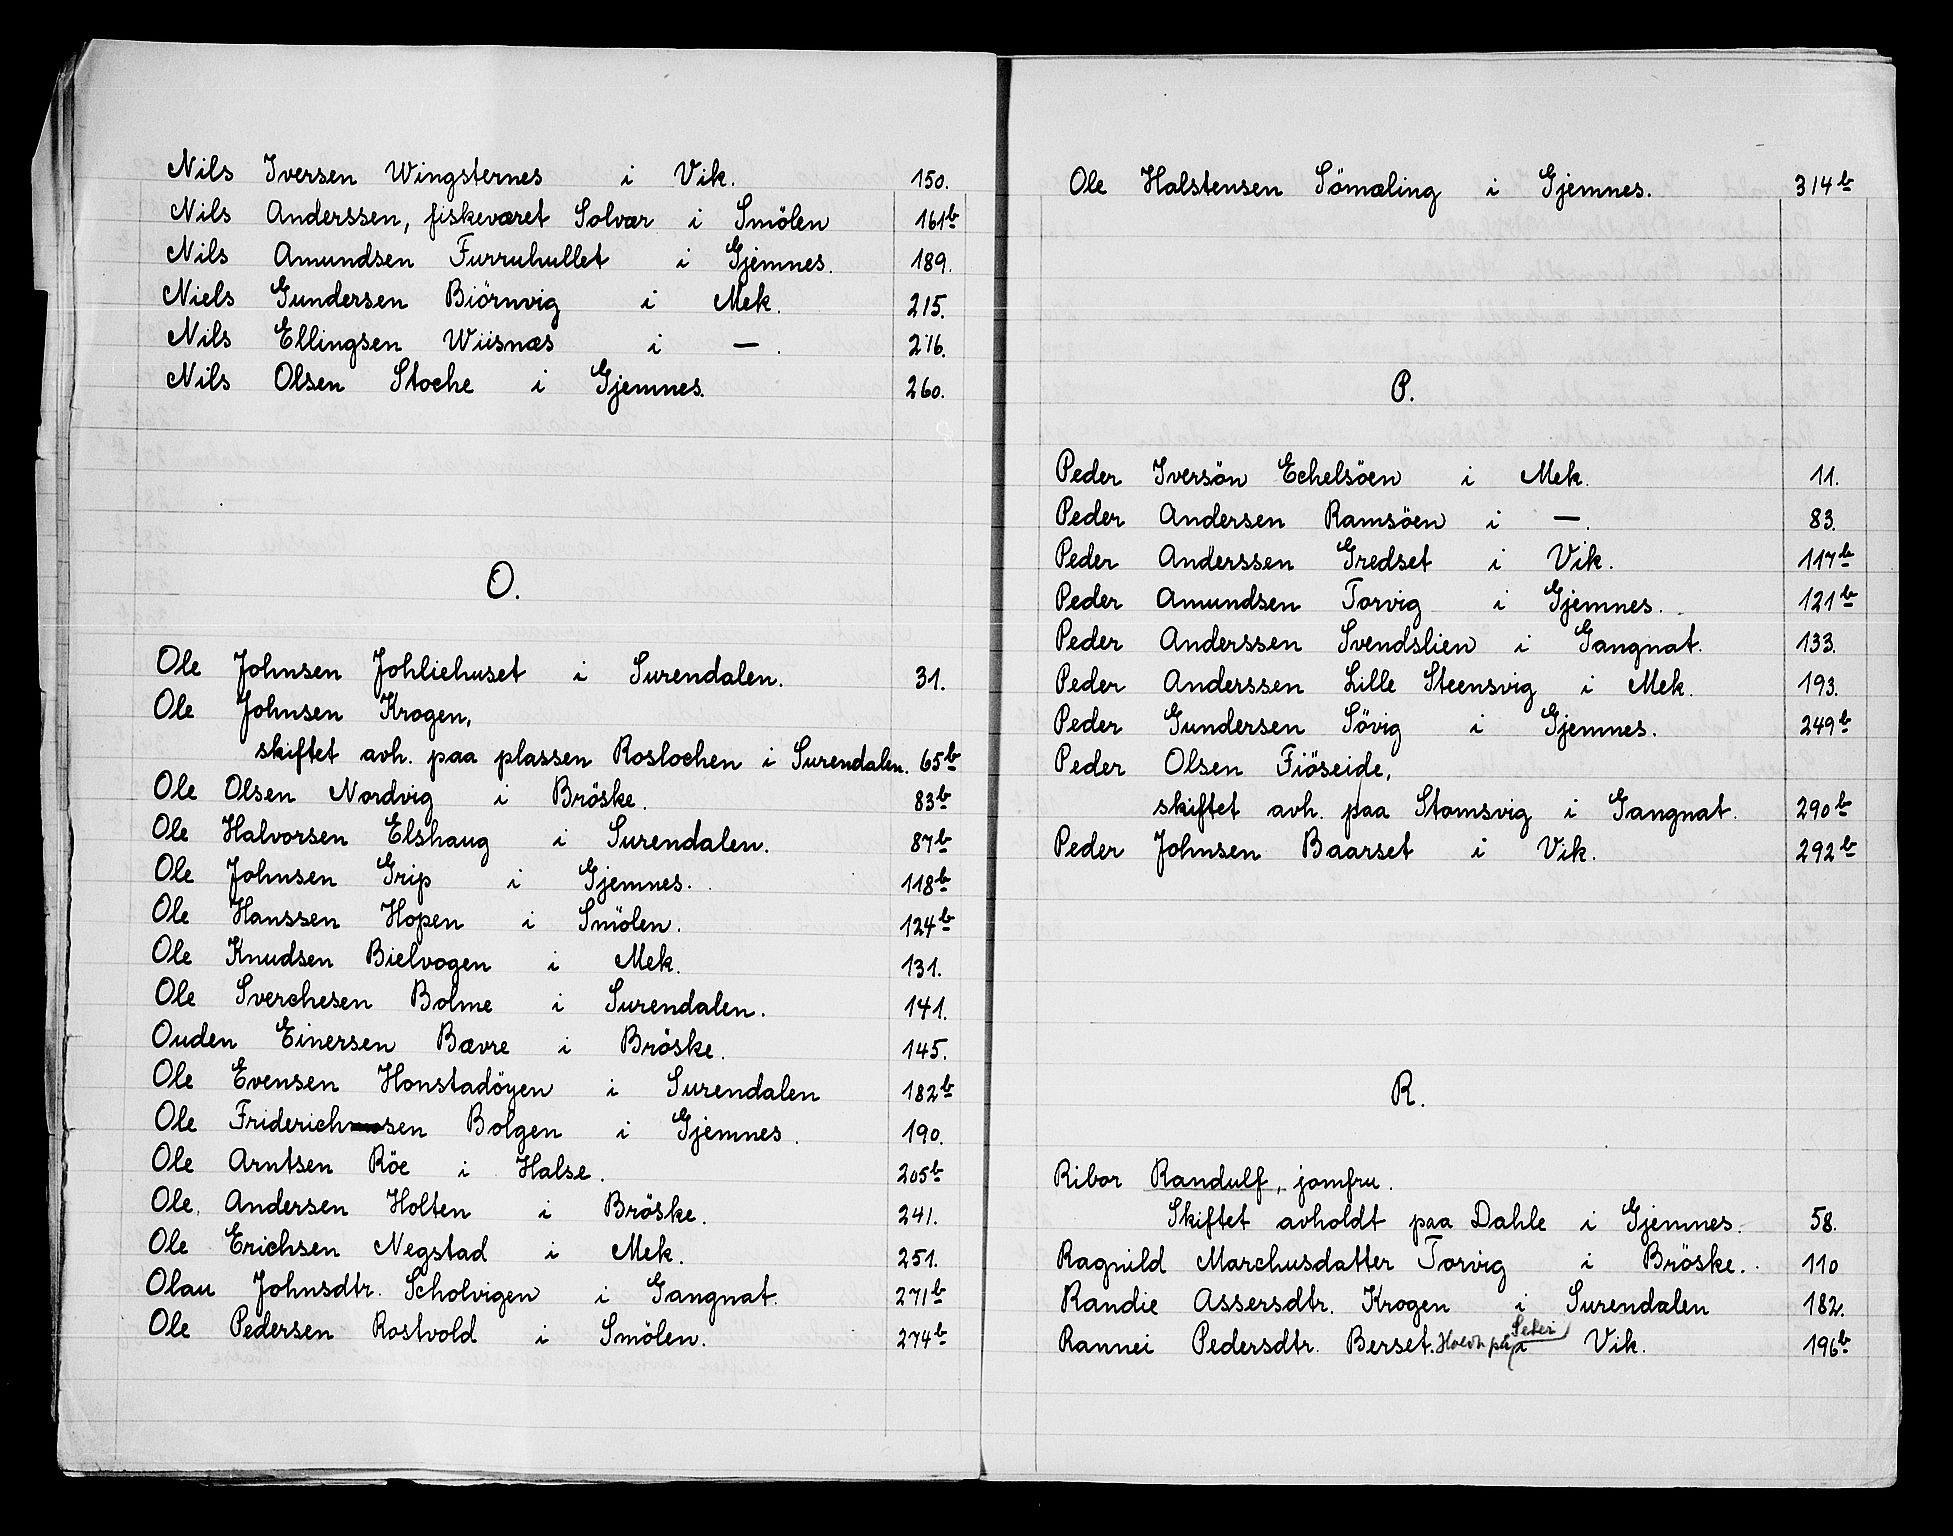 Nils Iversen Wingsternes i Vik. 150.
Nils Anderssen, fiskeværet Solvær i Smölen 161b
Nils Amundsen Furruhullet i Gjemnes. 189.
Niels Gundersen Biörnvig i Mek. 215.
Nils Ellingsen Wiisnæs i — . 216.
Nils Olsen Stoche i Gjemnes. 260.
O.
Ole Johnsen Johliehuset i Surendalen. 31.
Ole Johnsen Krogen,
skiftet avh. paa plassen Roslochen i Surendalen. 65b
Ole Olsen Nordvig i Bröske. 83b
Ole Halvorsen Elshaug i Surendalen. 87b
Ole Johnsen Grip i Gjemnes. 118b
Ole Hanssen Hopen i Smölen. 124b
Ole Knudsen Bielvogen i Mek. 131.
Ole Sverchesen Bolme i Surendalen. 141.
Ouden Einersen Bævre i Bröske. 145.
Ole Evensen Honstadöyen i Surendalen 182b
Ole Friderichsen Bolgen i Gjemnes. 190.
Ole Arntsen Röe i Halse. 205b
Ole Andersen Holten i Bröske. 241.
Ole Erichsen Negstad i Mek. 251.
Olau Johnsdtr. Scholvigen i Gangnat. 271b
Ole Pedersen Rostvold i Smölen. 274b
Ole Halstensen Sömæling i Gjemnes. 314b
P.
Peder Iversön Echelsöen i Mek. 11.
Peder Andersen Ramsöen i — . 83.
Peder Anderssen Gredset i Vik. 117b
Peder Amundsen Torvig i Gjemnes. 121b
Peder Anderssen Svendslien i Gangnat. 133.
Peder Anderssen Lille Steensvig i Mek. 193.
Peder Gundersen Sövig i Gjemnes. 249b
Peder Olsen Fiöseide,
skiftet avh. paa Stomsvig i Gangnat. 290b
Peder Johnsen Baarset i Vik. 292b
R.
Ribor Randulf, jomfru.
Skiftet avholdt paa Dahle i Gjemnes. 58.
Ragnild Marchusdatter Torvig i Bröske. 110
Randie Assersdtr. Krogen i Surendalen 182.
Rannei Pedersdtr. Berset. på Seter i Vik. 196b